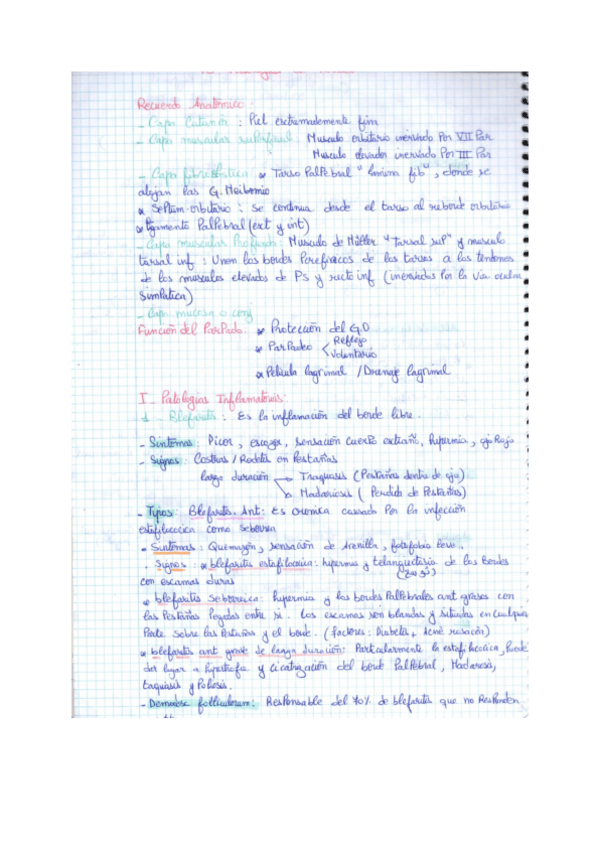 Recuerdo Anatómico :
- Capa Cutanea : Piel extremademente fina
- Capa muscular superficial : Musculo orbitario inervado Por VII Par
Musculo elevador inervado Por III Par
- Capa fibroelastica * Tarso PalPebral "lamina fib", donde se
alojan las G. Meibomio
* Septum orbitario : Se continua desde el tarso al reborde orbitario
* ligamento PalPebral (ext y int)
- Capa muscular Profunda : Musculo de Müller "Tarsal sup" y musculo
tarsal inf : Unen los bordes Perefiracos de los tarsos a los tendones
de los musculos elevados de PS y recto inf (inervados Por la via ocular
Simpatica)
- Capa mucosa o conj
Función del ParPado : * Protección del GO
* ParPadeo < Reflejo
Voluntario
* Pelicula lagrimal / Drenaje lagrimal
I - Patologias Inflamatorias :
1 - Blefaritis : Es la inflamación del borde libre .
- Sintomas : Picor, escozor, sensación cuerpo extraño, hipermia, ojo Rojo
- Signos : Costras / Rodetes en Pestañas
larga duración → Triquiasis (Pestañas dentro de ojo)
→ Madariosis ( Perdida de Pestañas)
- Tipos : Blefaritis. Ant : Es cronica causado Por la infección
estafilococica como seborrea
• Sintomas : Quemazón, sensación de arenilla, fotofobia leve .
. Signos : * blefaritis estafilococica : hipermia y telangiectasia de los Bordes
con escamas duras
* blefaritis seborreica : hipermia y los bordes PalPebrales ant grasos con
las Pestañas Pegadas entre si . Los escamas son blandas y situadas en cualquier
Parte sobre las Pestañas y el borde . (factores : Diabetes, Acné rosacón)
* blefaritis ant grave de larga duración : Particularmente la estafilococica, Puede
dar lugar a hipertrofia y cicatrización del borde PalPebral, Madarosis,
triquiasis y Poliosis.
- Demodex folliculorum : Responsable del 70% de blefaritis que no Responden